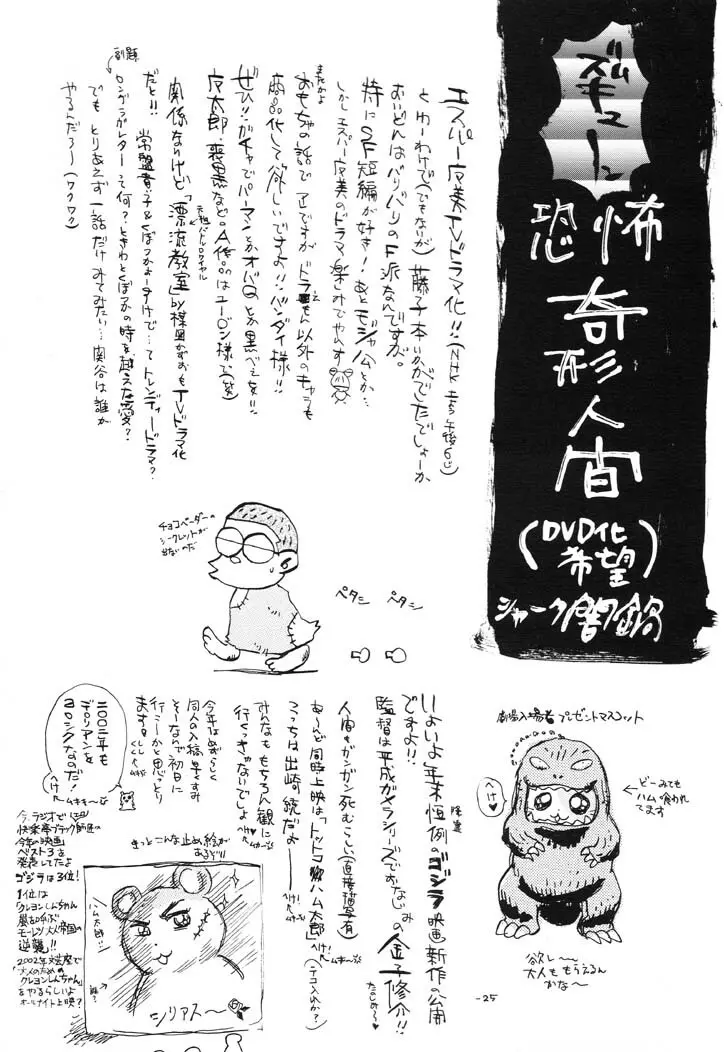 ズム
ズキューン
恐怖
奇形
人間
(DVD化
希望)
シャーク闇鍋
エスパー魔美TVドラマ化!!(NHK 午後6じ)
とゆーわけで(でもないが)藤子本いかがでしたでしょーか
おいどんはバリバリのF派なんですが。
特にSF短編が好き!あとモジャ公とか…
しかしエスパー魔美のドラマ楽しみでやんす
またかよ
おもちゃの話で
ですがドラえもん以外のキャラも
商品化して欲しいですよ!!バンダイ様!!
ぜひ!!ガチャでパーマンとかオバQとか黒べえを!!
魔太郎、喪黒などA作品はユージン様で(笑)
元祖バトルロワイヤル
関係ないけど「漂流教室」by楳図かずおもTVドラマ化
だと!!常盤貴子&くぼづかようすけで…てトレンディードラマ?
副題
ロングラブレターって何?ときわとくぼづかの時を越えた愛?
でもとりあえず一話だけみてみたい…関谷は誰が
やるんだろー(ワクワク)
チョコベーダーの
シークレットが
出ないのだ
ペタシ
ペタシ
劇場入場者プレゼントマスコット
へけ♥
どーみても
ハム喰われ
てます
欲し〜
大人ももらえるん
かな〜
いよいよ年末恒例のゴジラ映画新作の公開
ですよ!!
監督は平成ガメラシリーズでおなじみの金子修介!!
たのしみ〜♥
人間もガンガン死むらしい(直接描写有)
あ〜んど同時上映は「とっとこハム太郎」
こっちは出崎統だよ
へけ!
(テコ入れか?)
みんなももちろん観に
行くっきゃないでしょ
へけ♥
今年はめずらしく
同人の入稿早くすみ
そーなんで初日に
行こーかと思っとり
ます。
二〇〇二年も
デロリアンを
ヨロシクなのだ!
へけ
今、ラジオで
快楽亭ブラック師匠の
今年の映画
ベスト3を
発表してたよ
ゴジラは3位!
1位は
クレヨンしんちゃん
嵐を呼ぶ
モーレツ大人帝国の
逆襲!!
2002年文芸座で
「大人のための
クレヨンしんちゃん」
をやるらしいよ
オールナイト上映?
きっとこんな止め絵が
あるゾ!!
ハム太郎…
誰?
シリアス〜
-25